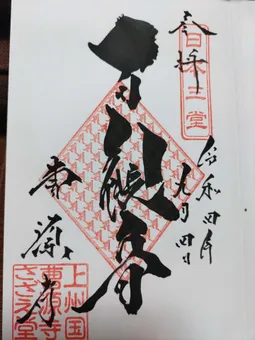 日本三堂
奉拝
令和四年
九月四日
百観音
曹源寺
上州国
曹源寺
さざえ堂